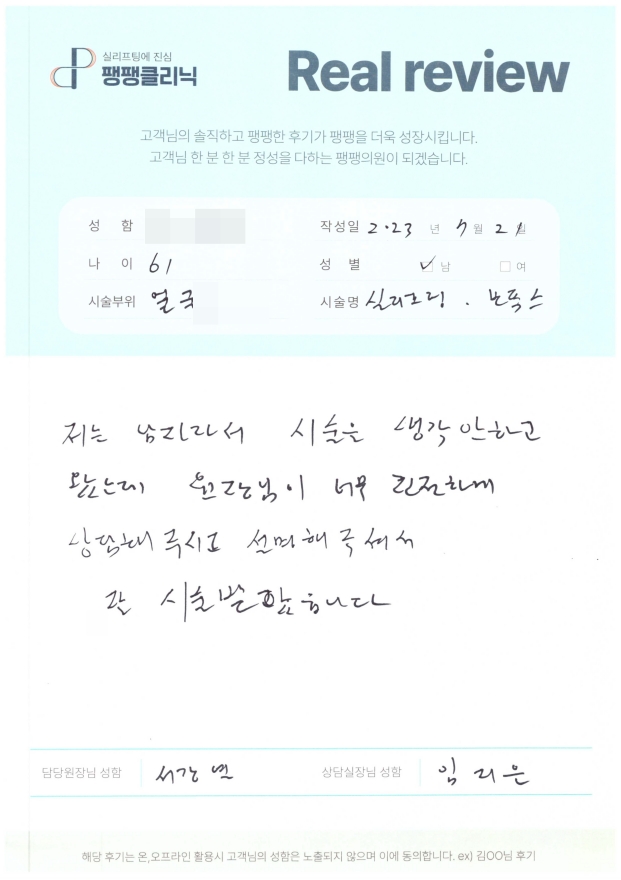 실리프팅에 진심
팽팽클리닉
Real review
고객님의 솔직하고 팽팽한 후기가 팽팽을 더욱 성장시킵니다.
고객님 한 분 한 분 정성을 다하는 팽팽의원이 되겠습니다.
성 함 작성일 2023 년 월 21 일
나 이 61 성 별 남 여
시술부위 얼굴 시술명 실리프팅 . 보톡스
저는 남자라서 시술은 생각 안하고
왔는데 원장님이 너무 친절하게
상담해 주시고 설명해 주셔서
잘 시술받았습니다
담당원장님 성함 상담실장님 성함 임 리 은
해당 후기는 온,오프라인 활용시 고객님의 성함은 노출되지 않으며 이에 동의합니다. ex) 김OO님 후기